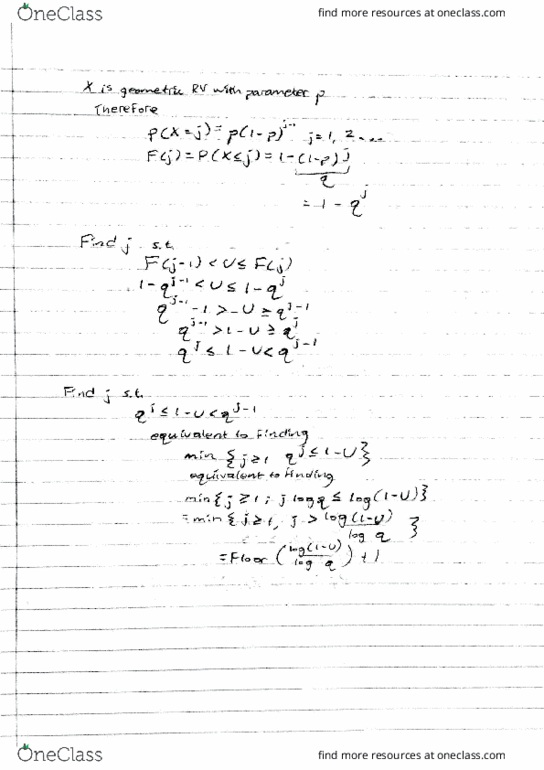 OneClass
find more resources at oneclass.com
X is geometric RV with parameter p
Therefore
P(X=j) = p(1-p)^{j-1} j=1, 2 ....
F(j) = P(X≤j) = 1-(1-p)^j
q
= 1 - q^j
Find j s.t.
F(j-1) < U ≤ F(j)
1 - q^{j-1} < U ≤ 1 - q^j
q^{j-1} -1 > -U ≥ q^j -1
q^{j-1} > 1-U ≥ q^j
q^j ≤ 1-U < q^{j-1}
Find j s.t.
q^j ≤ 1-U < q^{j-1}
equivalent to finding
min {j≥1 q^j ≤ 1-U}
equivalent to finding
min{j≥1; j log q ≤ log(1-U)}
= min{j≥1, j > log(1-U)/log q}
= Floor (log(1-U)/log q) + 1
OneClass
find more resources at oneclass.com